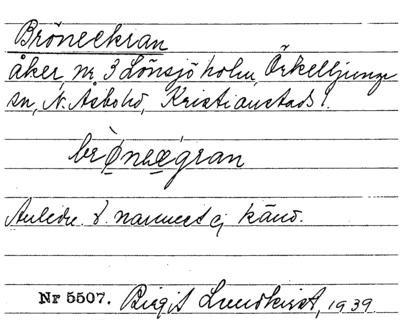 Bröneekran
åker, nr 3 Lönsjöholm, Örkelljunga
sn, N. Åsbohd, Kristianstads l.
Anledn. t. namnet ej känd.
Nr 5507. Birgit Lundkvist, 1939.